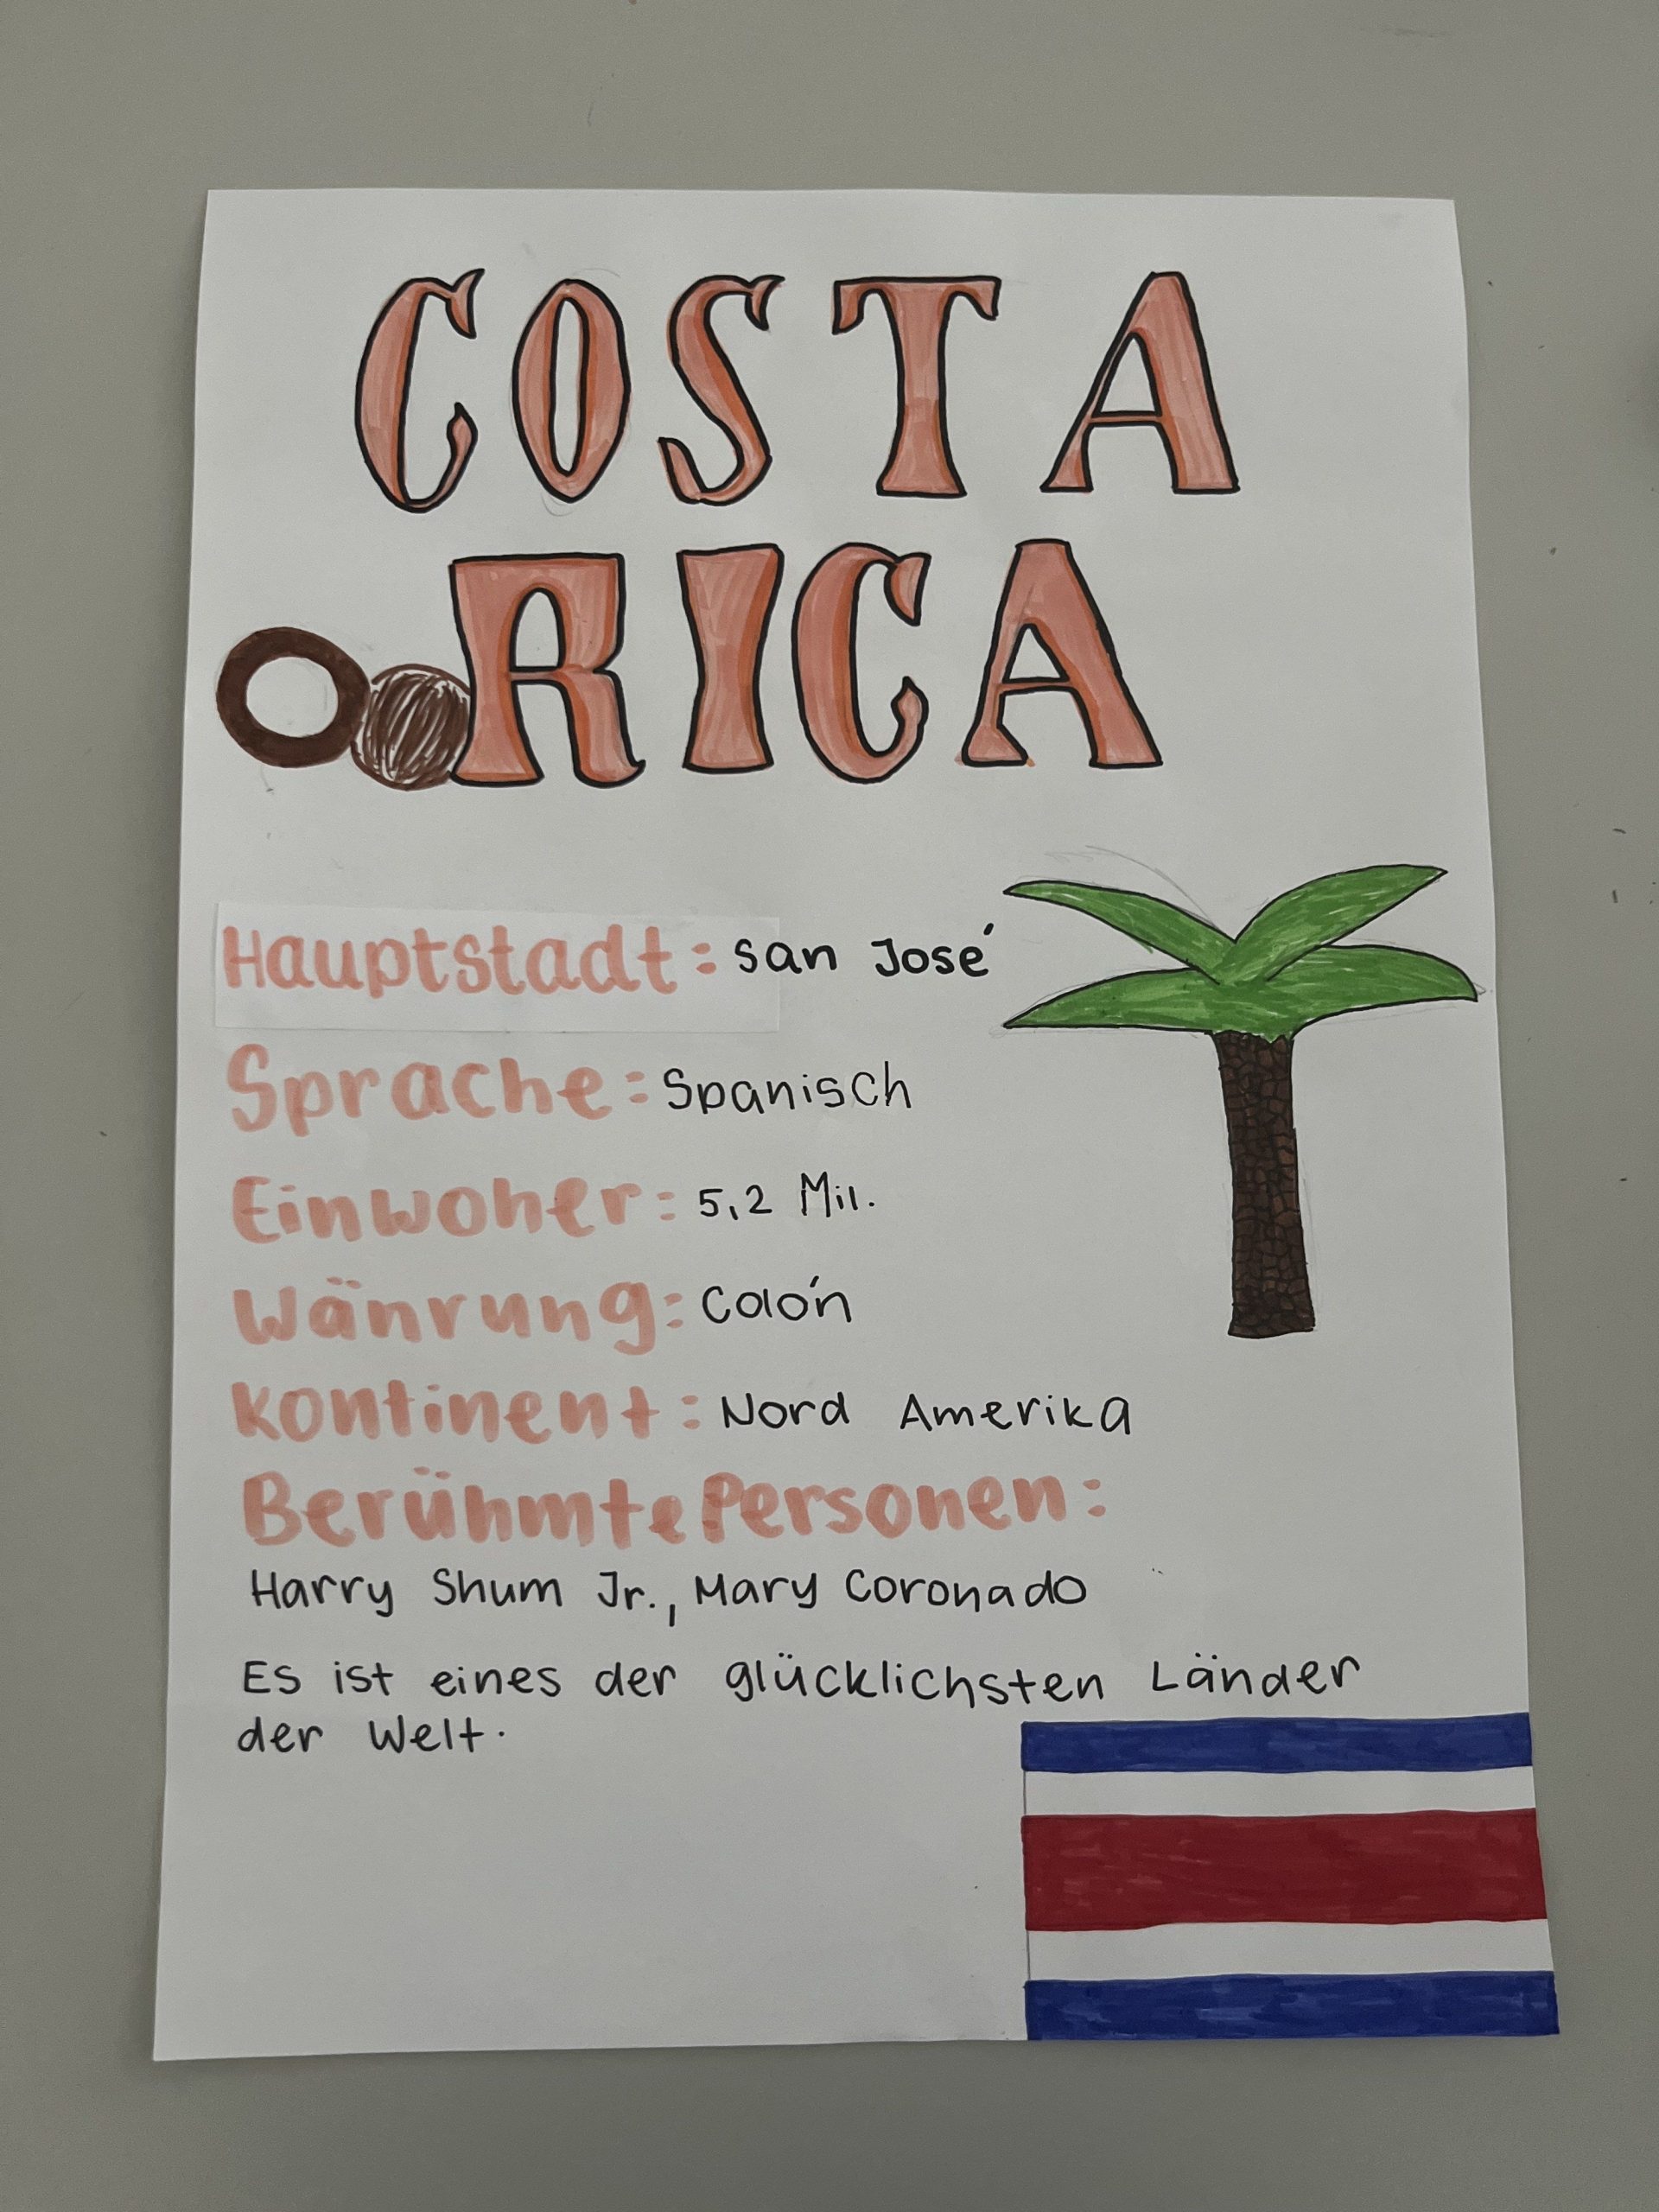 COSTA
RICA
Hauptstadt: san José
Sprache: Spanisch
Einwoher: 5,2 Mil.
Wänrung: Colón
Kontinent: Nord Amerika
Berühmte Personen:
Harry Shum Jr., Mary Coronado
Es ist eines der glücklichsten Länder
der Welt.